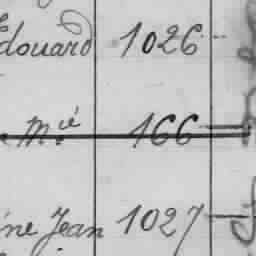 Edouard 1026
Mié 166
ine Jean 1027